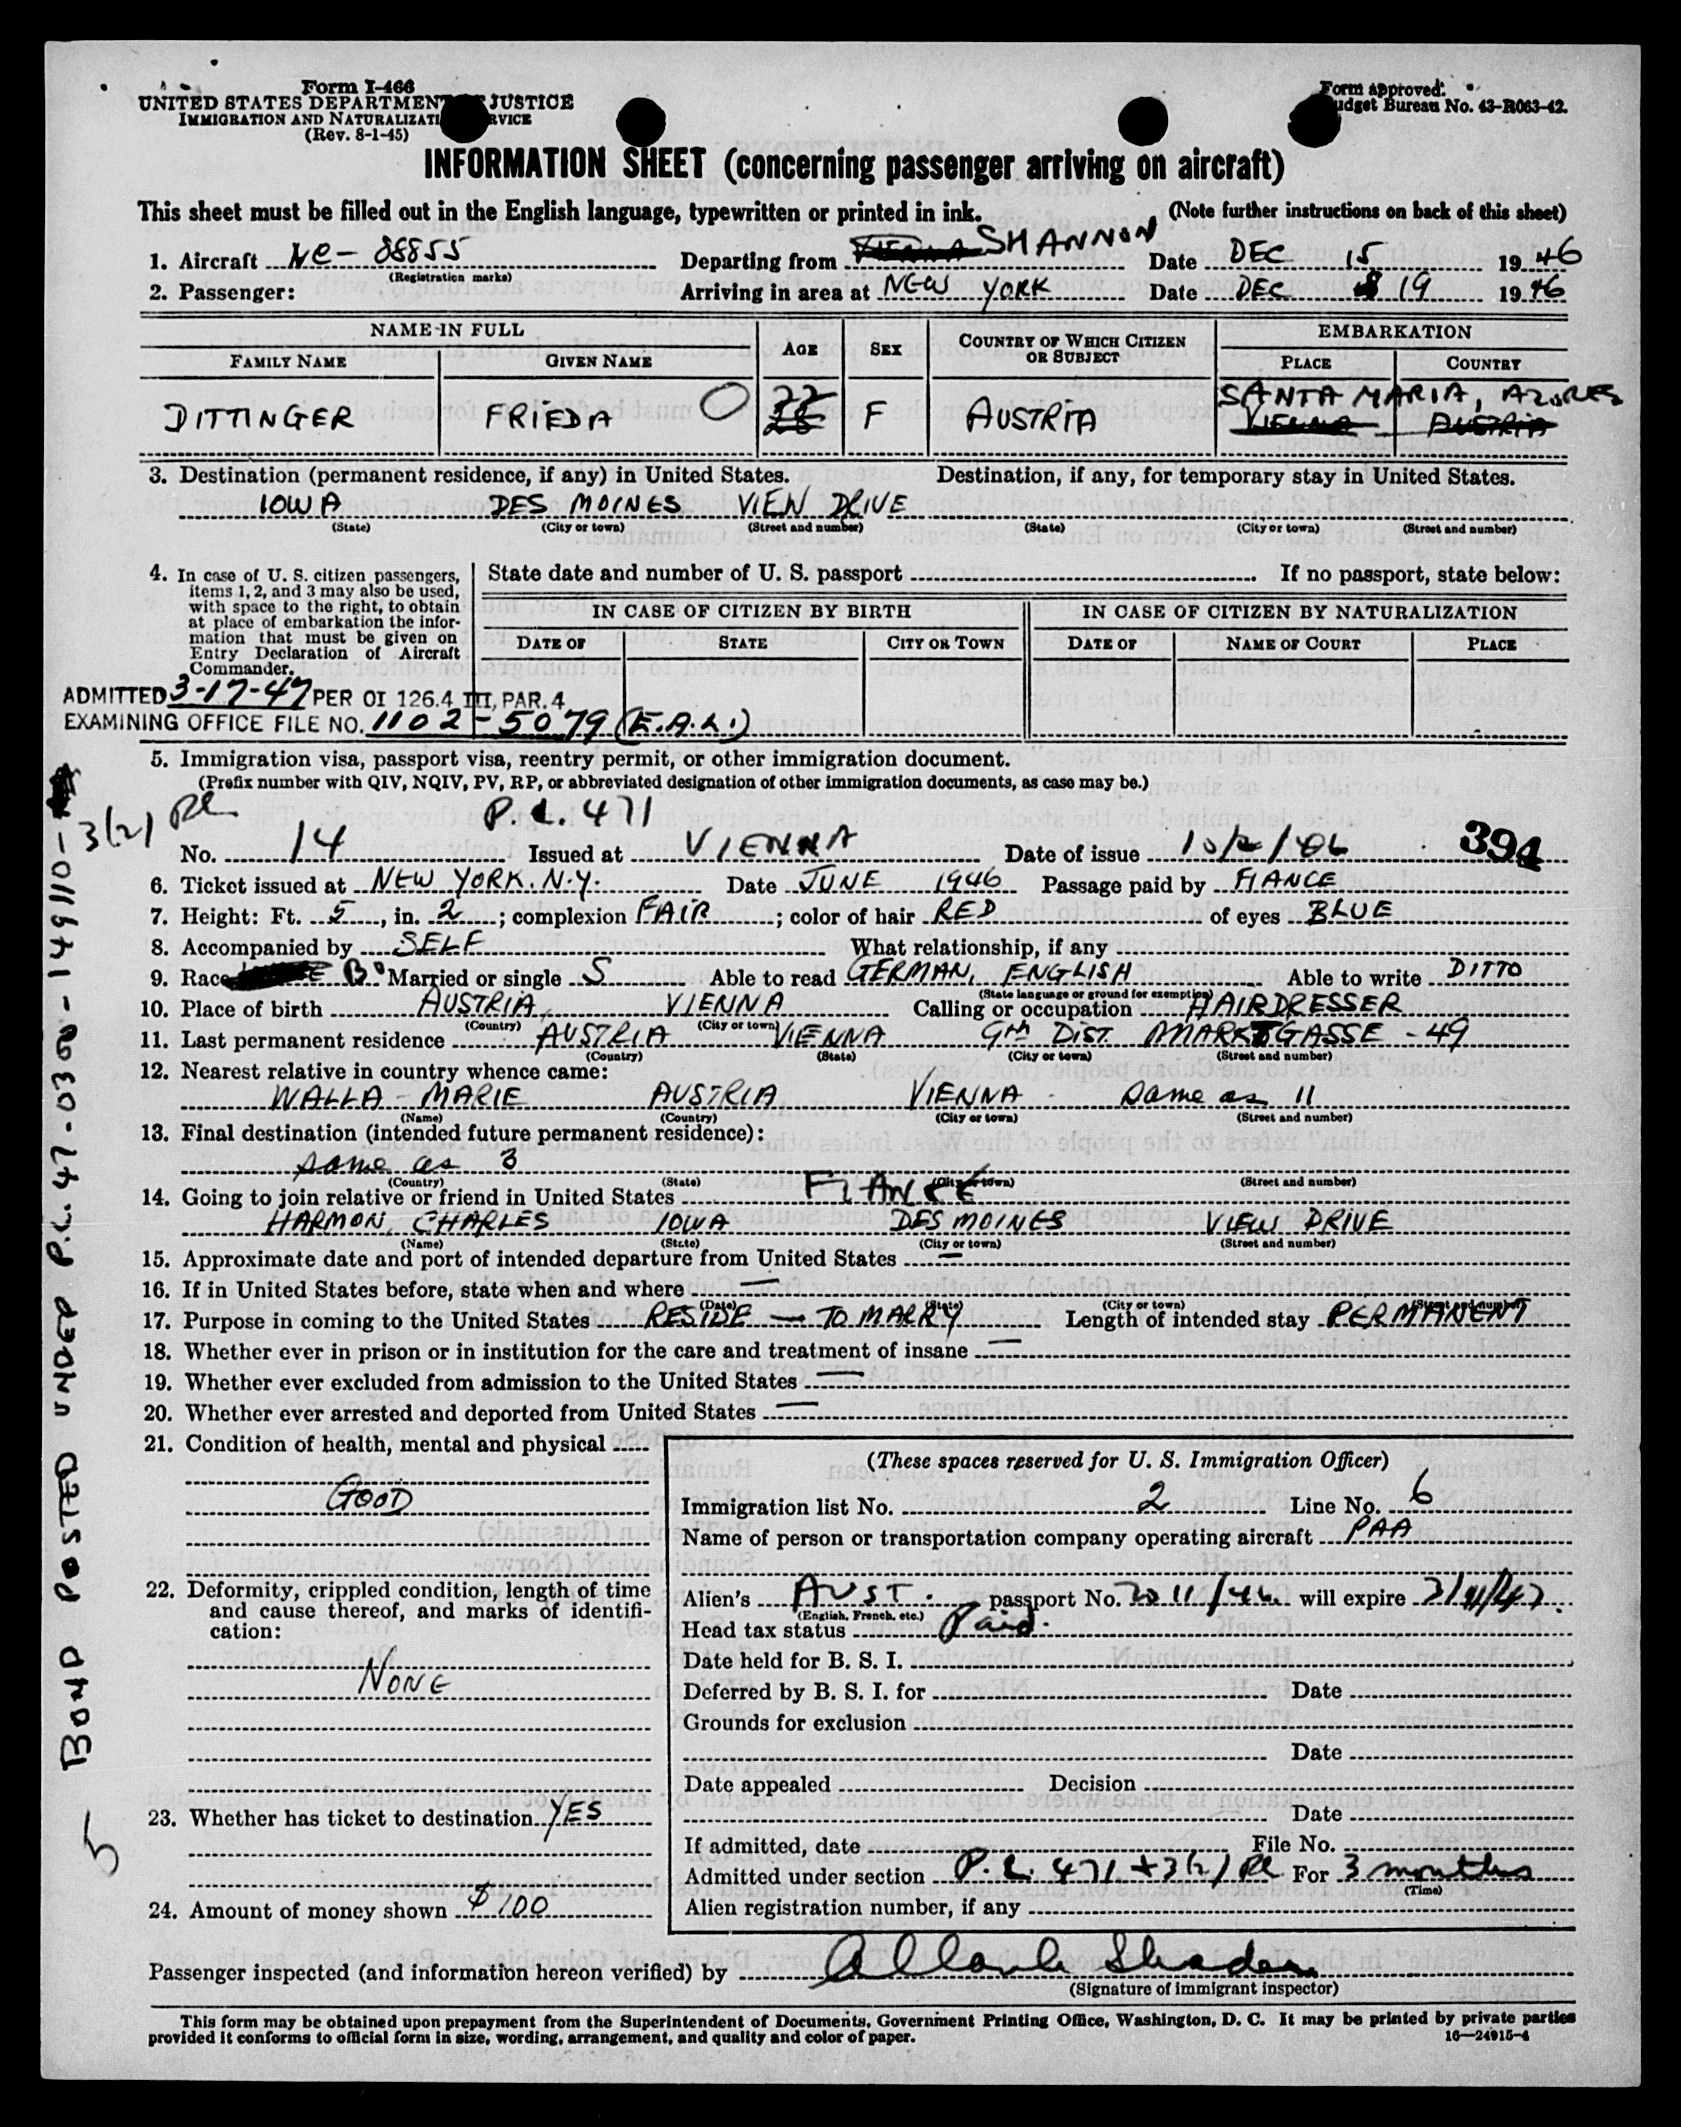 Form I-466
UNITED STATES DEPARTMENT JUSTICE
IMMIGRATION AND NATURALIZATI RVICE
(Rev. 8-1-45)
Form approved.
udget Bureau No. 43-R063-42.
INFORMATION SHEET (concerning passenger arriving on aircraft)
This sheet must be filled out in the English language, typewritten or printed in ink. (Note further instructions on back of this sheet)
1. Aircraft NC-88855 Departing from VIENNA SHANNON Date DEC 15 1946
(Registration marks)
2. Passenger: Arriving in area at NEW YORK Date DEC 19 1946
NAME IN FULL AGE SEX COUNTRY OF WHICH CITIZEN OR SUBJECT EMBARKATION
FAMILY NAME GIVEN NAME PLACE COUNTRY
DITTINGER FRIEDA 22 F AUSTRIA SANTA MARIA, AZORES
VIENNA AUSTRIA
3. Destination (permanent residence, if any) in United States. Destination, if any, for temporary stay in United States.
IOWA DES MOINES VIEW DRIVE
(State) (City or town) (Street and number) (State) (City or town) (Street and number)
4. In case of U. S. citizen passengers, items 1, 2, and 3 may also be used, with space to the right, to obtain at place of embarkation the information that must be given on Entry Declaration of Aircraft Commander.
State date and number of U. S. passport If no passport, state below:
IN CASE OF CITIZEN BY BIRTH IN CASE OF CITIZEN BY NATURALIZATION
DATE OF STATE CITY OR TOWN DATE OF NAME OF COURT PLACE
ADMITTED 3-17-47 PER OI 126.4 III, PAR. 4
EXAMINING OFFICE FILE NO. 1102-5079 (E.A.L.)
5. Immigration visa, passport visa, reentry permit, or other immigration document.
(Prefix number with QIV, NQIV, PV, RP, or abbreviated designation of other immigration documents, as case may be.)
3(2) P.L. 471
No. 14 Issued at VIENNA Date of issue 394
6. Ticket issued at NEW YORK. N.Y. Date JUNE 1946 Passage paid by FIANCE
7. Height: Ft. 5, in. 2; complexion FAIR; color of hair RED of eyes BLUE
8. Accompanied by SELF What relationship, if any
9. Race Married or single S Able to read GERMAN, ENGLISH Able to write DITTO
(State language or ground for exemption)
10. Place of birth AUSTRIA, VIENNA Calling or occupation HAIRDRESSER
(Country) (City or town)
11. Last permanent residence AUSTRIA VIENNA 9th DIST. MARKTGASSE - 49
(Country) (State) (City or town) (Street and number)
12. Nearest relative in country whence came:
WALLA - MARIE AUSTRIA VIENNA same as 11
(Name) (Country) (City or town) (Street and number)
13. Final destination (intended future permanent residence):
same as 3
(Country) (State) (City or town) (Street and number)
14. Going to join relative or friend in United States FIANCÉ
HARMON, CHARLES IOWA DES MOINES VIEW DRIVE
(Name) (State) (City or town) (Street and number)
15. Approximate date and port of intended departure from United States —
16. If in United States before, state when and where —
(Date) (State) (City or town) (Street and number)
17. Purpose in coming to the United States RESIDE — TO MARRY Length of intended stay PERMANENT
18. Whether ever in prison or in institution for the care and treatment of insane —
19. Whether ever excluded from admission to the United States —
20. Whether ever arrested and deported from United States —
21. Condition of health, mental and physical
GOOD
22. Deformity, crippled condition, length of time and cause thereof, and marks of identification:
NONE
23. Whether has ticket to destination YES
24. Amount of money shown $100
(These spaces reserved for U. S. Immigration Officer)
Immigration list No. 2 Line No. 6
Name of person or transportation company operating aircraft PAA
Alien's AUST. passport No. will expire
(English, French, etc.)
Head tax status Paid.
Date held for B. S. I.
Deferred by B. S. I. for Date
Grounds for exclusion
Date
Date appealed Decision
Date
If admitted, date File No.
Admitted under section P.L. 471 + 3(2) For 3 months
(Time)
Alien registration number, if any
Passenger inspected (and information hereon verified) by
(Signature of immigrant inspector)
This form may be obtained upon prepayment from the Superintendent of Documents, Government Printing Office, Washington, D. C. It may be printed by private parties
provided it conforms to official form in size, wording, arrangement, and quality and color of paper. 16—24915-4
5 BOND POSTED UNDER P.L. 471